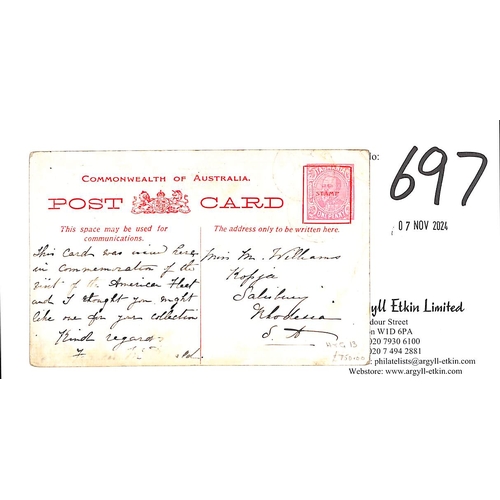 COMMONWEALTH OF AUSTRALIA.
POST CARD
This space may be used for
communications.
The address only to be written here.
STAMP
ONE PENNY
This Card was issued here
in commemoration of the
visit of the American Fleet
and I thought you might
like one for your collection
Kind regards
Miss M. Williams
Kopje
Salisbury
Rhodesia
S. A
H & G 13
£750.00
No:
697
07 NOV 2024
yll Etkin Limited
dour Street
on W1D 6PA
020 7930 6100
020 7 494 2881
: philatelists@argyll-etkin.com
Webstore: www.argyll-etkin.com